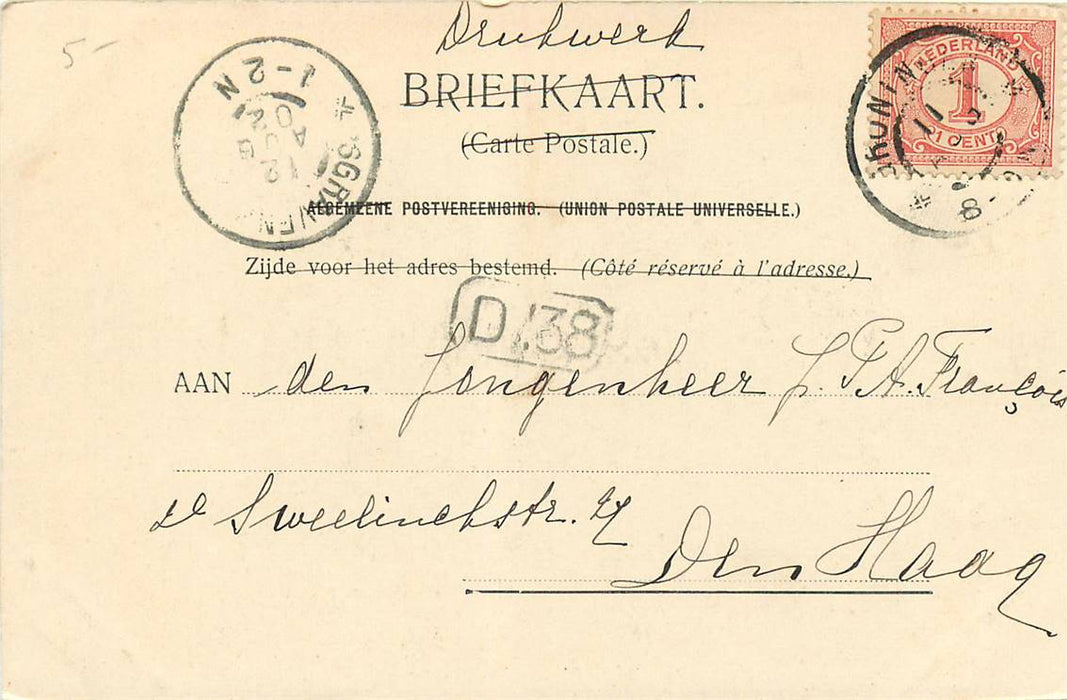 5-
Drukwerk
BRIEFKAART.
(Carte Postale.)
ALGEMEENE POSTVEREENIGING. (UNION POSTALE UNIVERSELLE.)
Zijde voor het adres bestemd. (Côté réservé à l'adresse.)
NEDERLAND
1
1 CENT
GRONIN
11
8
1-2 N
12
AUG
02
*'SGRAVEN
D/38
AAN den Jongenheer J. P. A. François
Sweelinckstr.
Den Haag